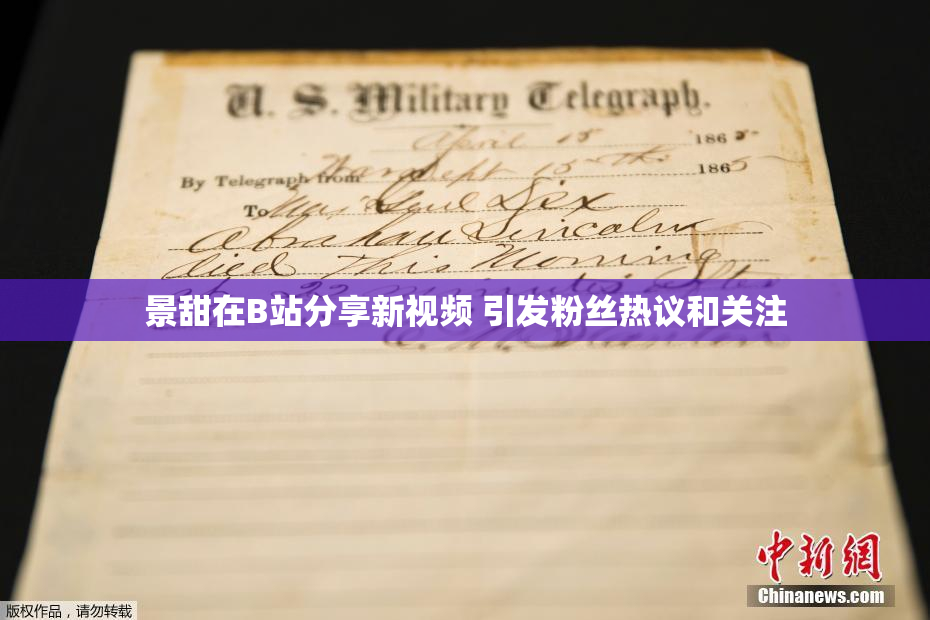 U. S. Military Telegraph.
April 15 1865
By Telegraph from War Dept 15th 1865
To Maj Genl Dix
Abraham Lincoln
died This Morning
at 22 minutes after
景甜在B站分享新视频 引发粉丝热议和关注
E. M. Stanton
中新网
Chinanews.com
版权作品，请勿转载